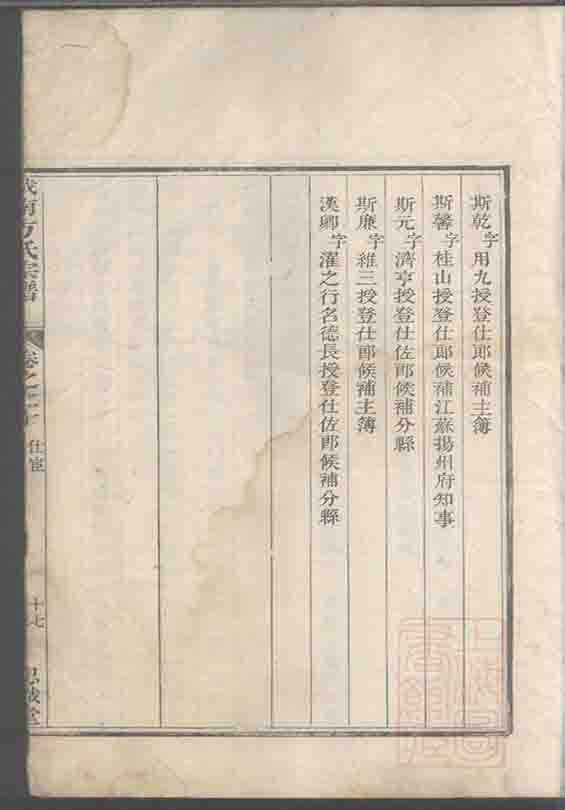 斯乾字用九授登仕郎候補主簿
斯馨字桂山授登仕郎候補江蘇揚州府知事
斯元字濟亨授登仕佐郎候補分縣
斯廉字維三授登仕郎候補主簿
漢卿字濯之行名德長授登仕佐郎候補分縣
南方氏宗譜
卷之
仕宦
十七
誠堂
上海圖書館藏